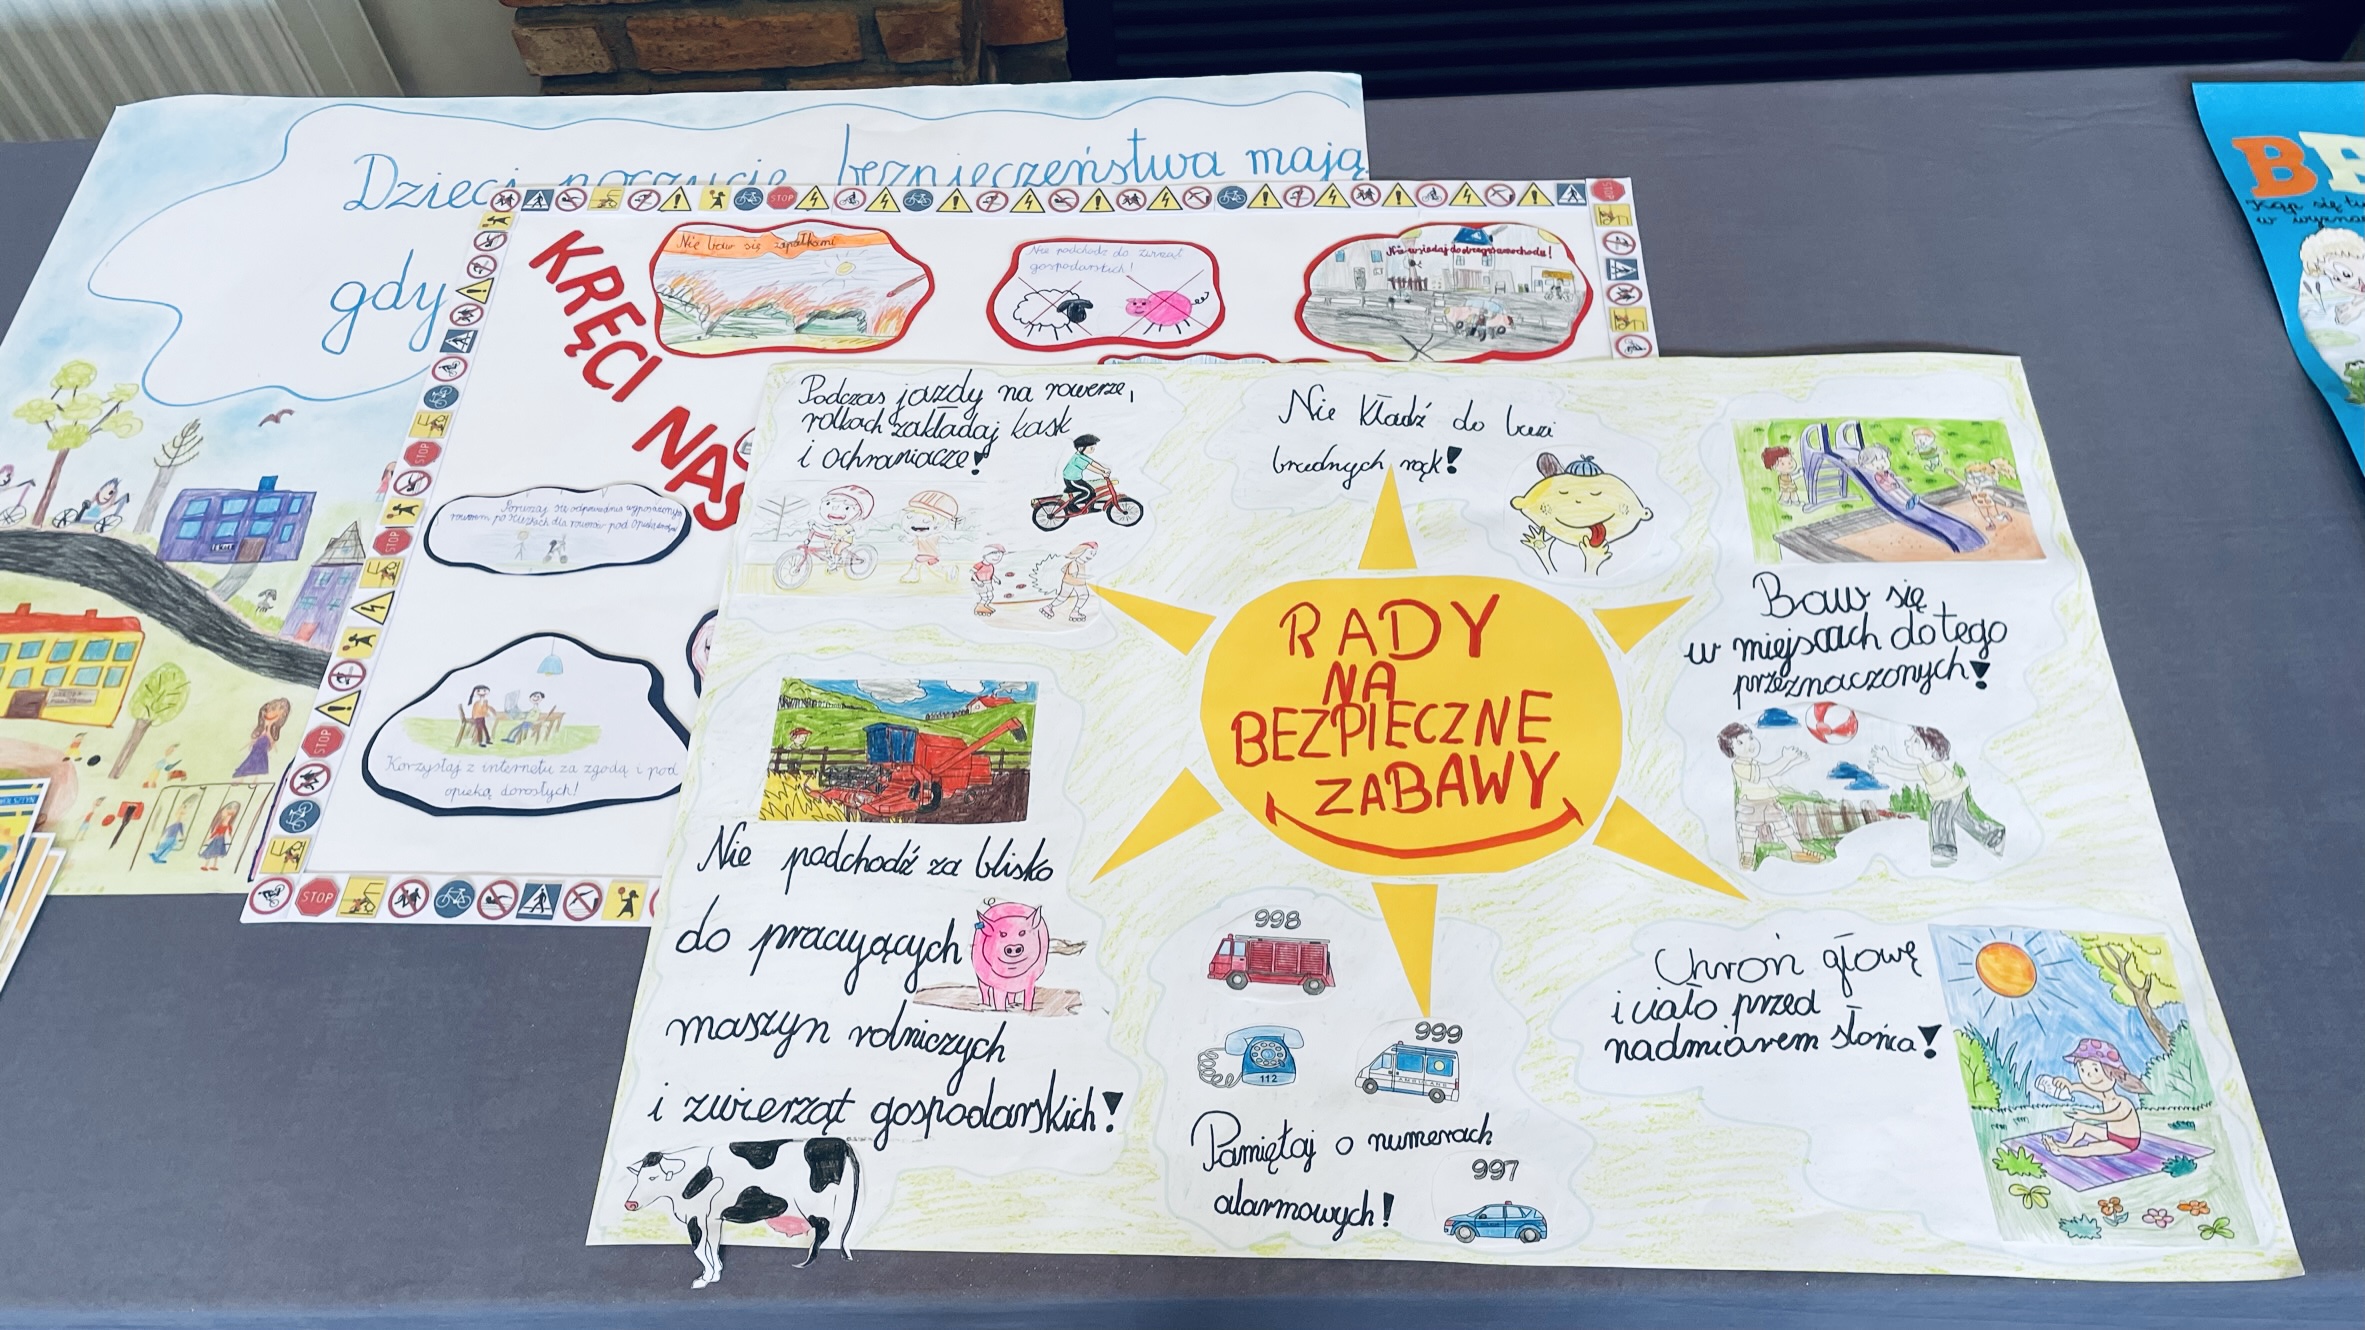 Dzieci poczucie bezpieczeństwa mają
gdy
KRĘCI NAS
Nie baw się zapałkami
Nie podchodź do zwierząt
gospodarskich!
Nie wsiadaj do obcego samochodu!
rowerem po ścieżkach dla rowerów pod
Korzystaj z internetu za zgodą i pod
opieką dorosłych!
STOP
STOP
STOP
STOP
STOP
STOP
STOP
Podczas jazdy na rowerze,
rolkach zakładaj kask
i ochraniacze!
Nie kładź do buzi
brudnych rąk!
Baw się
w miejscach do tego
przeznaczonych!
RADY
NA
BEZPIECZNE
ZABAWY
Nie podchodź za blisko
do pracujących
maszyn rolniczych
i zwierząt gospodarskich!
998
999
112
AMBULANS
Pamiętaj o numerach
997
alarmowych!
Chroń głowę
i ciało przed
nadmiarem słońca!
B
Kąp się
w